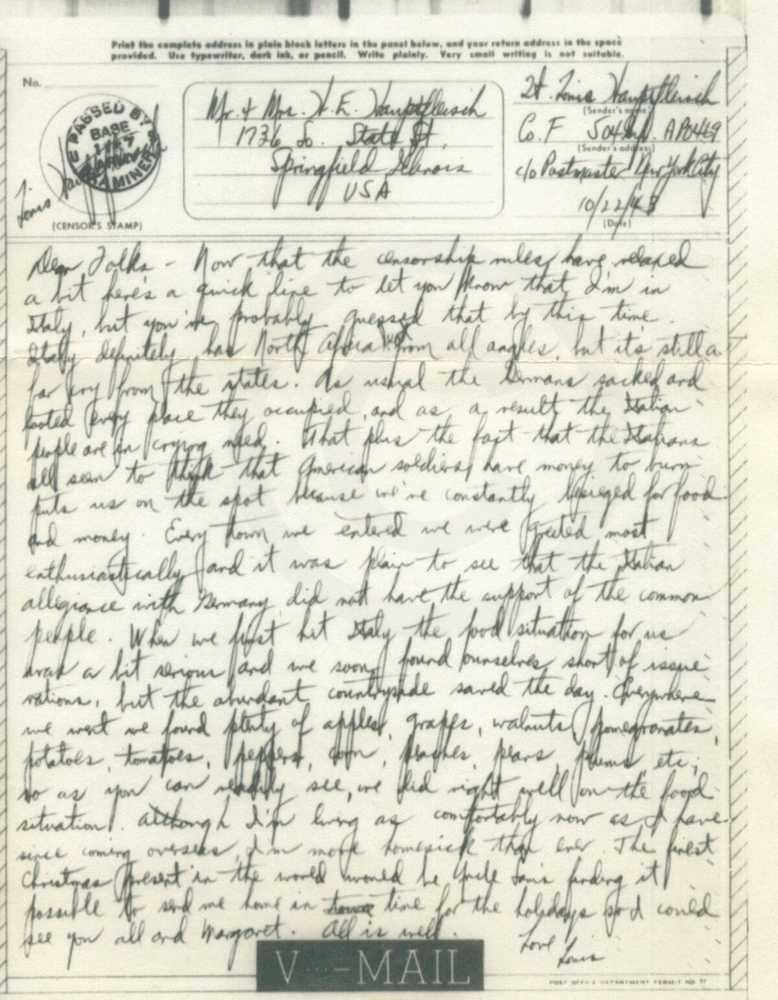 Print the complete address in plain block letters in the panel below, and your return address in the space
provided. Use typewriter, dark ink, or pencil. Write plainly. Very small writing is not suitable.
No.
PASSED BY
BASE
EXAMINER
(CENSOR'S STAMP)
Mr. + Mrs. H. E. Hauptfleisch
1736 So. State St.
Springfield Illinois
USA
Lt. Louis Hauptfleisch
(Sender's name)
Co. F 504 APO 469
(Sender's address)
c/o Postmaster New York City
10/22/43
(Date)
Louis
Dear Folks - Now that the censorship rules have relaxed
a bit here's a quick line to let you know that I'm in
Italy, but you've probably guessed that by this time.
Italy definitely has North Africa from all angles, but it's still a
far cry from the states. As usual the Germans sacked and
looted every place they occupied, and as a result the Italian
people are in crying need. That plus the fact that the Italians
all seem to think that American soldiers have money to burn
puts us on the spot because we're constantly besieged for food
and money. Every town we entered we were greeted most
enthusiastically and it was plain to see that the Italian
allegiance with Germany did not have the support of the common
people. When we first hit Italy the food situation for us
was a bit serious and we soon found ourselves short of issue
rations, but the abundant countryside saved the day. Everywhere
we went we found plenty of apples, grapes, walnuts, pomegranates,
potatoes, tomatoes, peppers, corn, peaches, pears, plums, etc;
so as you can readily see, we did right well on the food
situation. Although I'm living as comfortably now as I have
since coming overseas, I'm more homesick than ever. The finest
Christmas present in the world would be Uncle Sam's finding it
possible to send me home in time for the holidays so I could
see you all and Margaret. All is well.
Love Louis
V···—MAIL
POST OFFICE DEPARTMENT PERMIT NO.